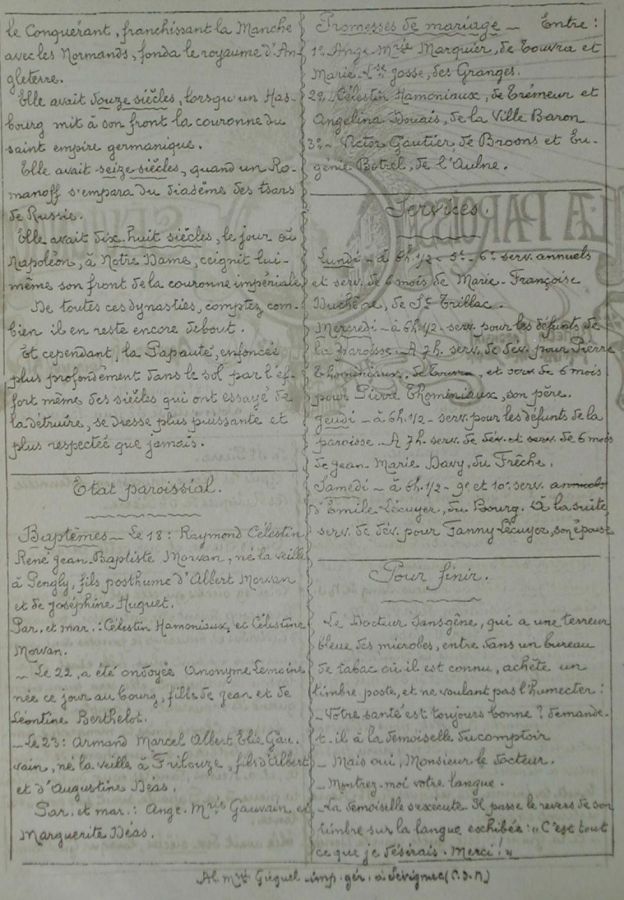 le Conquérant, franchissant la Manche
avec les Normands, fonda le royaume d'An-
gleterre.
Elle avait douze siècles, lorsqu'un Has-
bourg mit à son front la couronne du
saint empire germanique.
Elle avait seize siècles, quand un Ro-
manoff s'empara du diadème des tsars
de Russie.
Elle avait dix-huit siècles, le jour où
Napoléon, à Notre Dame, ceignit lui-
même son front de la couronne impériale
De toutes ces dynasties, comptez com-
bien il en reste encore debout.
Et cependant, la Papauté, enfoncée
plus profondément dans le sol par l'ef-
fort même des siècles qui ont essayé de
la détruire, se dresse plus puissante et
plus respectée que jamais.
Etat paroissial.
Baptêmes - Le 18 : Raymond Célestin
René Jean-Baptiste Morvan, né la veille
à Pengly, fils posthume d'Albert Morvan
et de Joséphine Huguet.
Par. et mar. : Célestin Hamoniaux, et Célestine
Morvan.
- Le 22, a été ondoyée Anonyme Lemoine
née ce jour au bourg, fille de Jean et de
Léontine Berthelot.
- Le 23 : Armand Marcel Albert Elie Gau-
vain, né la veille à Fribouze, fils d'Albert
et d'Augustine Déas.
Par. et mar. : Ange-Mrie Gauvain, et
Marguerite Déas.
Promesses de mariage - Entre :
1º Ange Mrie Marquier, de Couvra et
Marie Lse Josse, des Granges.
2º Célestin Hamoniaux, de Trémeur et
Angelina Douais, de la Ville Baron
3º - Victor Gautier de Broons et Eu-
génie Botrel, de l'Aulne.
LA PAROISSE
Services.
Lundi - à 6h 1/2 - 5e - 6e serv. annuels
et serv. de 6 mois de Marie-Françoise
Duchêne, de St Trillac.
Mercredi - à 6h 1/2 - serv. pour les défunts de
la paroisse. A 7h. serv. de dév. pour Pierre
Thominiaux, de et serv. de 6 mois
pour Pierre Thominiaux, son père.
Jeudi - à 6h. 1/2 - serv. pour les défunts de la
paroisse. A 7h. serv. de dév. et serv. de 6 mois
de Jean-Marie Davy, du Frêche.
Samedi - à 6h. 1/2 - 9e et 10e serv. annuels
d'Emile Lécuyer, du Bourg. A la suite
serv. de dév. pour Fanny Lécuyer, son épouse
Pour finir.
Le Docteur Sansgêne, qui a une terreur
bleue des microbes, entre dans un bureau
de tabac où il est connu, achète un
timbre poste, et ne voulant pas l'humecter :
- Votre santé est toujours bonne ? demande-
t-il à la demoiselle du comptoir
- Mais oui, Monsieur le docteur.
- Montrez-moi votre langue.
- La demoiselle s'exécute. Il passe le revers de son
timbre sur la langue exhibée : "C'est tout
ce que je désirais. Merci !"
Al. Mrie Guéguel imp. gér. à Sévignac (C.D.N)